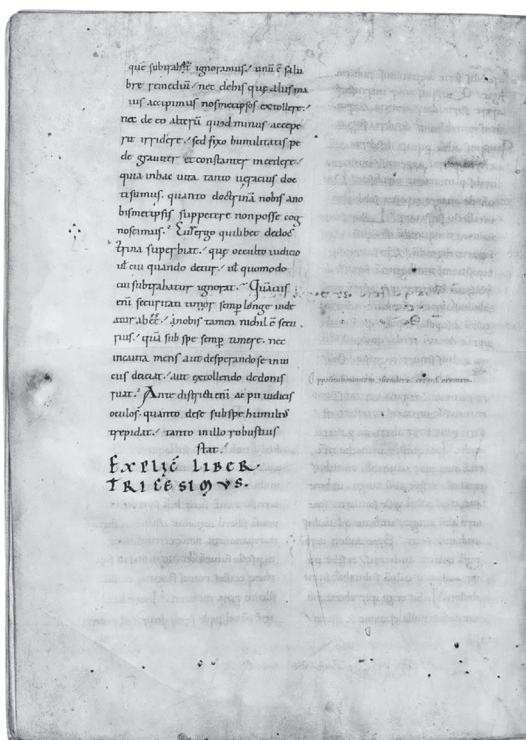 que subtrahat ignoramus. unū ē salu
bre remediū. nec de his que alius ma
ius accipimus nosmetipsos extollere.
nec de eo alterū quod minus accepe
rit irridere. sed fixo humilitatis pe
de graviter et constanter incedere.
quia in hac vita tanto veracius doc
tisumus. quanto doctrinā nobis a no
bismetipsis suppetere non posse cog
noscimus. Cur ergo quilibet de doc
trina superbiat. que occulto iudicio
vł cui quando detur. vł quomodo
cui subtrahatur ignorat. Quāvis
enī securitati timor semp longe vide
atur abēē. nobis tamen nichil ē secu
rius. quā sub spe semp timere. nec
incauta mens aut desperando se in vi
ciis deiciat. aut extollendo de donis
ruat. Ante districti enī ac pii iudicis
oculos. quanto de se sub spe humiliꝰ
trepidat. tanto in illo robustius
stat.
EXPLIC̄ LIBER
TRICESIMVS.